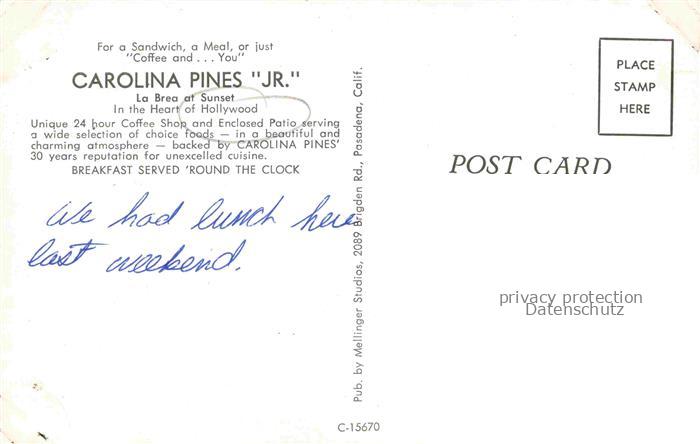 For a Sandwich, a Meal, or just
"Coffee and . . . You"
CAROLINA PINES "JR."
La Brea at Sunset
In the Heart of Hollywood
Unique 24 hour Coffee Shop and Enclosed Patio serving
a wide selection of choice foods — in a beautiful and
charming atmosphere — backed by CAROLINA PINES'
30 years reputation for unexcelled cuisine.
BREAKFAST SERVED 'ROUND THE CLOCK
We had lunch here
last weekend.
Pub. by Mellinger Studios, 2089 Brigden Rd., Pasadena, Calif.
C-15670
PLACE
STAMP
HERE
POST CARD
privacy protection
Datenschutz